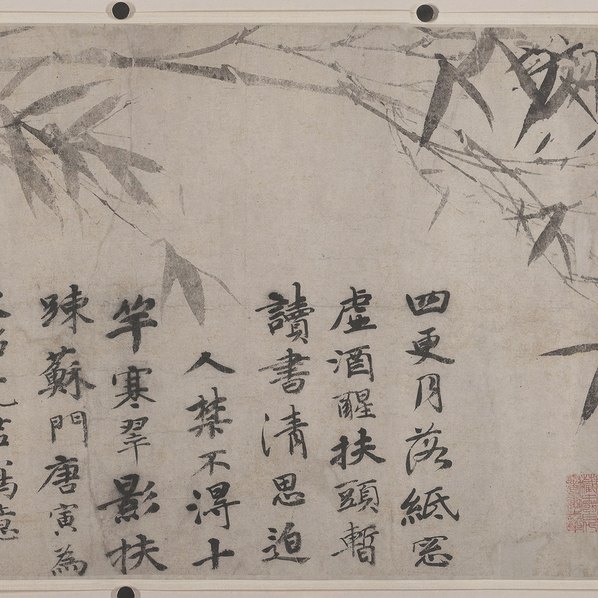 四更月落紙窓
虛酒醒扶頭暫
讀書清思迫
人禁不得十
竿寒翠影扶
踈蘇門唐寅為